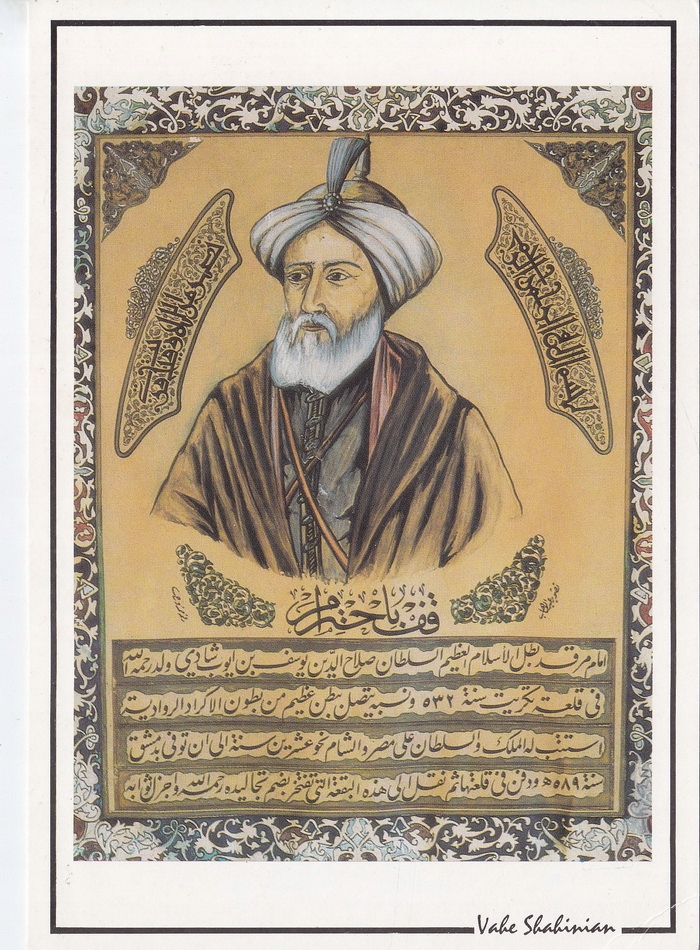 بسم الله الرحمن الرحيم
نصر من الله وفتح قريب
قف باحترام
امام مرقد بطل الاسلام العظيم السلطان صلاح الدين يوسف بن ايوب شادي ولد رحمه الله
في قلعة تكريت سنة ٥٣٢ ونسبه يتصل ببطن عظيم من بطون الاكراد الروادية
استتب له الملك والسلطان على مصر والشام نحو عشرين سنة الى ان توفي بدمشق
سنة ٥٨٩ه‍ ودفن في قلعتها ثم نقل الى هذه البقعة التي تفتخر بضم تجاليده رحمه الله واجزل ثوابه
Vahe Shahinian